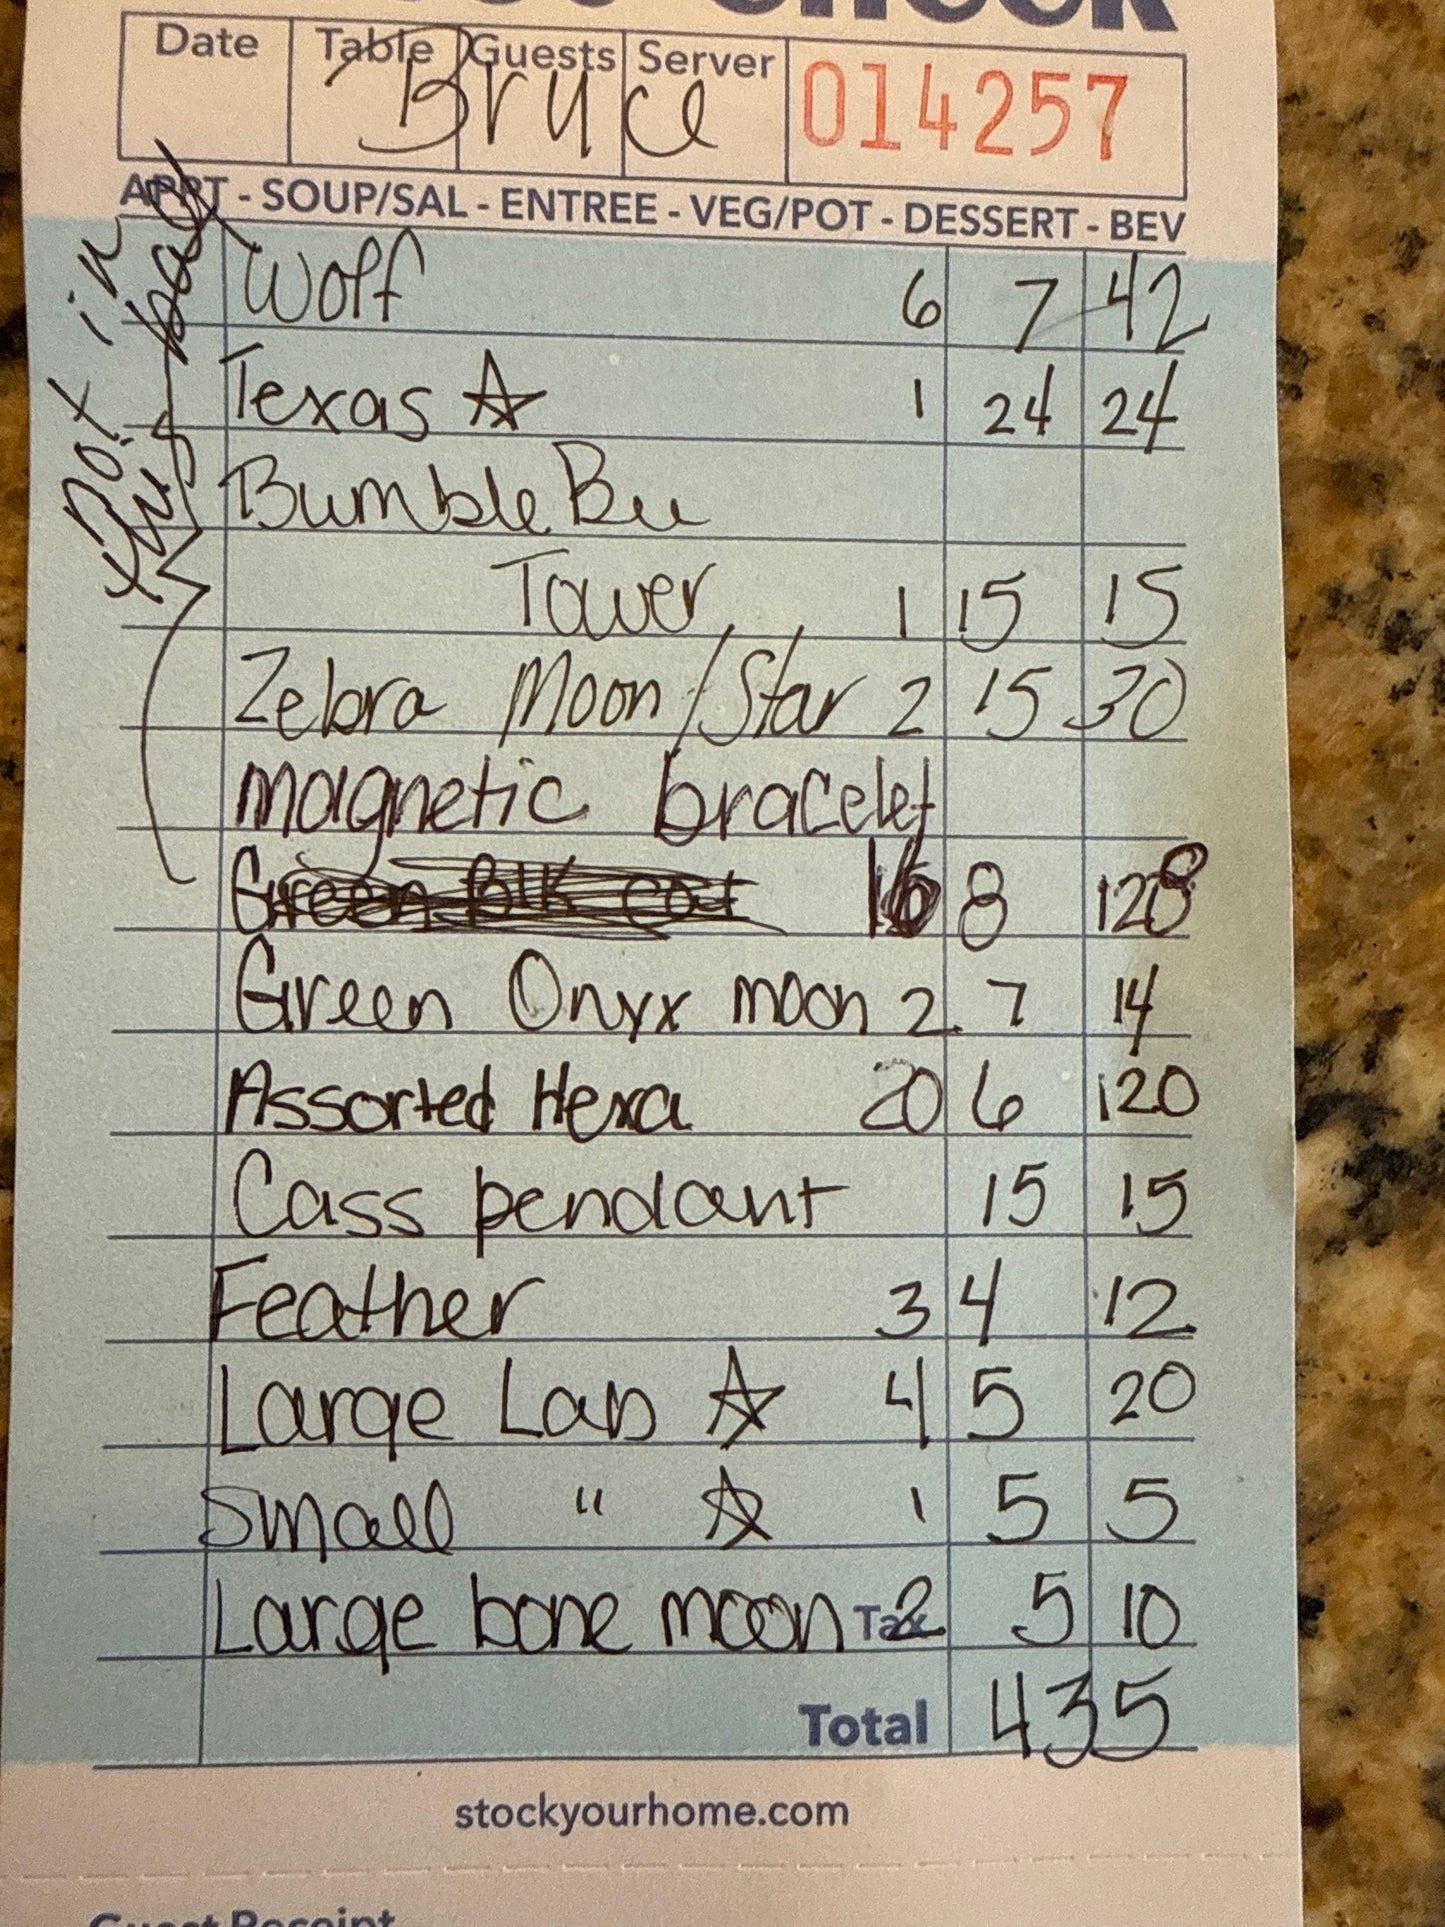 Date Table Guests Server 014257
Bruce
APPT - SOUP/SAL - ENTREE - VEG/POT - DESSERT - BEV
not in
this bag
Wolf 6 7 42
Texas ☆ 1 24 24
Bumble Bee
Tower 1 15 15
Zebra Moon/Star 2 15 30
magnetic bracelet
Green Blk cat 16 8 128
Green Onyx moon 2 7 14
Assorted Hexa 20 6 120
Cass pendant 15 15
Feather 3 4 12
Large Lab ☆ 4 5 20
Small " ☆ 1 5 5
Large bone moon Tax 2 5 10
Total 435
stockyourhome.com
Guest Receipt